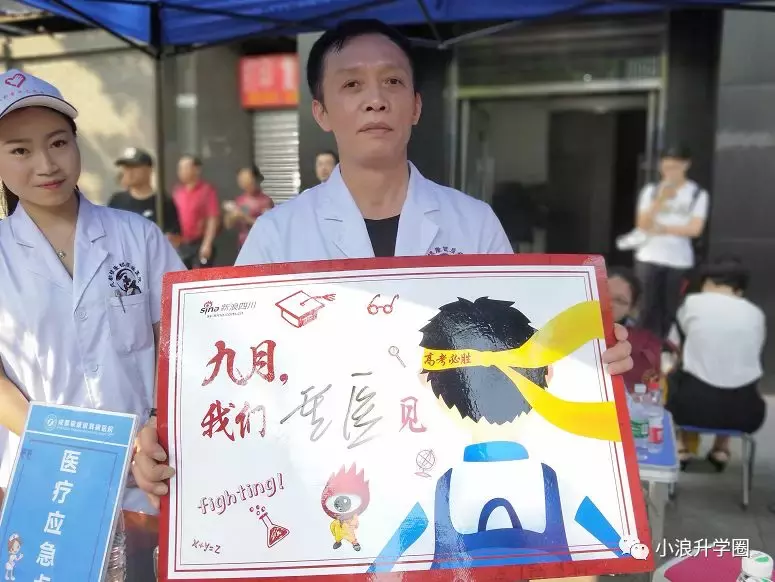 sina 新浪四川
sc.sina.com.cn
高考必胜
九月，
我们 医 见
fighting!
x+y=z
医疗应急
小浪升学圈